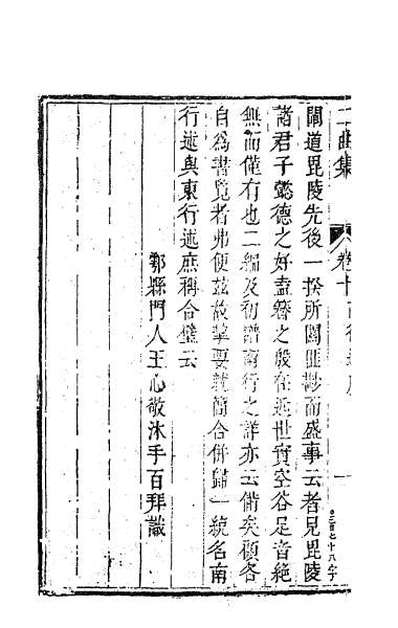 二曲集
卷十
一
闡道毘陵先後一揆所關匪尠而盛事云者見毘陵
諸君子懿德之好盍簪之殷在近世實空谷足音絕
無而僅有也二編及初譜南行之詳亦云備矣顧各
自為書覽者弗便茲故要就簡合併歸一統名南
行述與東行述庶稱合璧云
鄠縣門人王心敬沐手百拜識